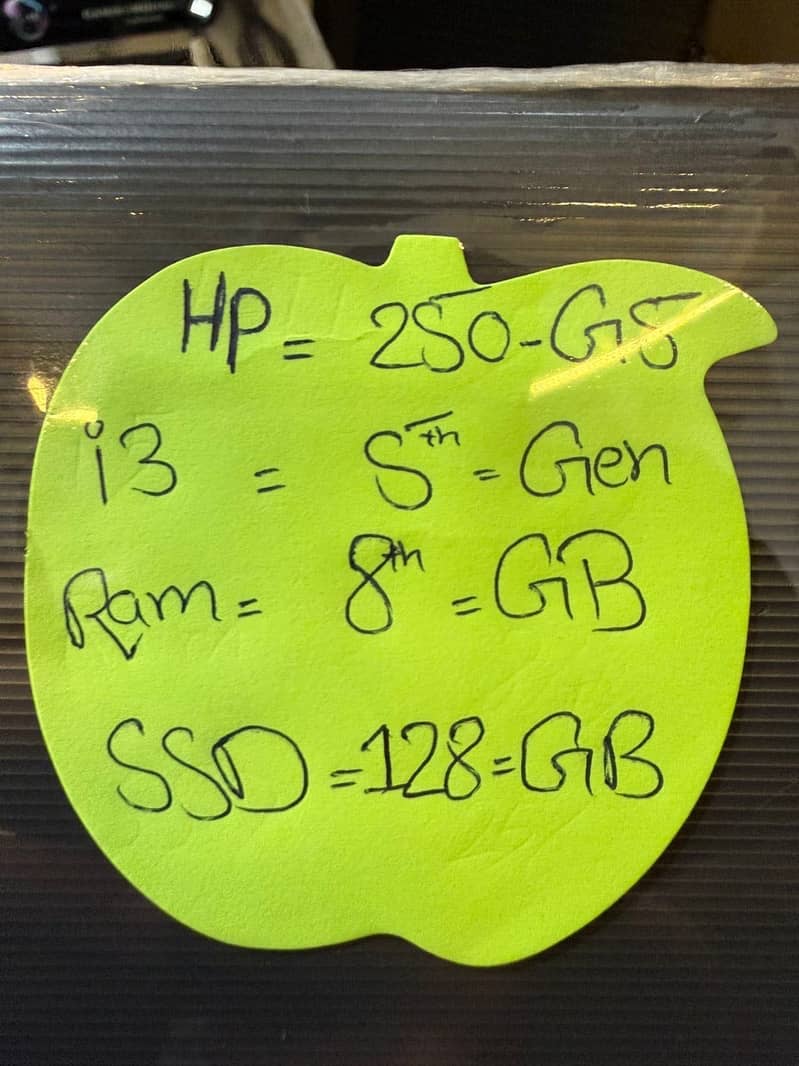 HP = 250-G5
i3 = 5th = Gen
Ram = 8th = GB
SSD = 128 = GB